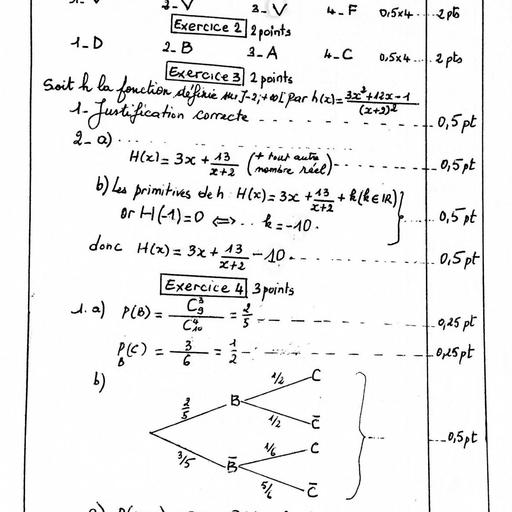 1_ V 2_ V 3_ V 4_ F 0,5x4 2pts
Exercice 2 2 points
1_D 2_B 3_A 4_C 0,5x4 2pts
Exercice 3 2 points
Soit h la fonction définie sur ]-2;+∞[ par h(x) = (3x²+12x-1)/(x+2)²
1- Justification correcte 0,5 pt
2_ a)
H(x) = 3x + 13/(x+2) (+ tout autre nombre réel) 0,5 pt
b) Les primitives de h H(x) = 3x + 13/(x+2) + k (k∈IR)
or H(-1) = 0 ⟺ .. k = -10. 0,5 pt
donc H(x) = 3x + 13/(x+2) - 10 0,5 pt
Exercice 4 3 points
1. a) P(B) = C₉³/C₁₀⁴ = 2/5 0,25 pt
P_B(C) = 3/6 = 1/2 0,25 pt
b)
1/2 C
B
2/5 1/2 C̅
1/6 C
3/5 B̅
5/6 C̅
0,5 pt